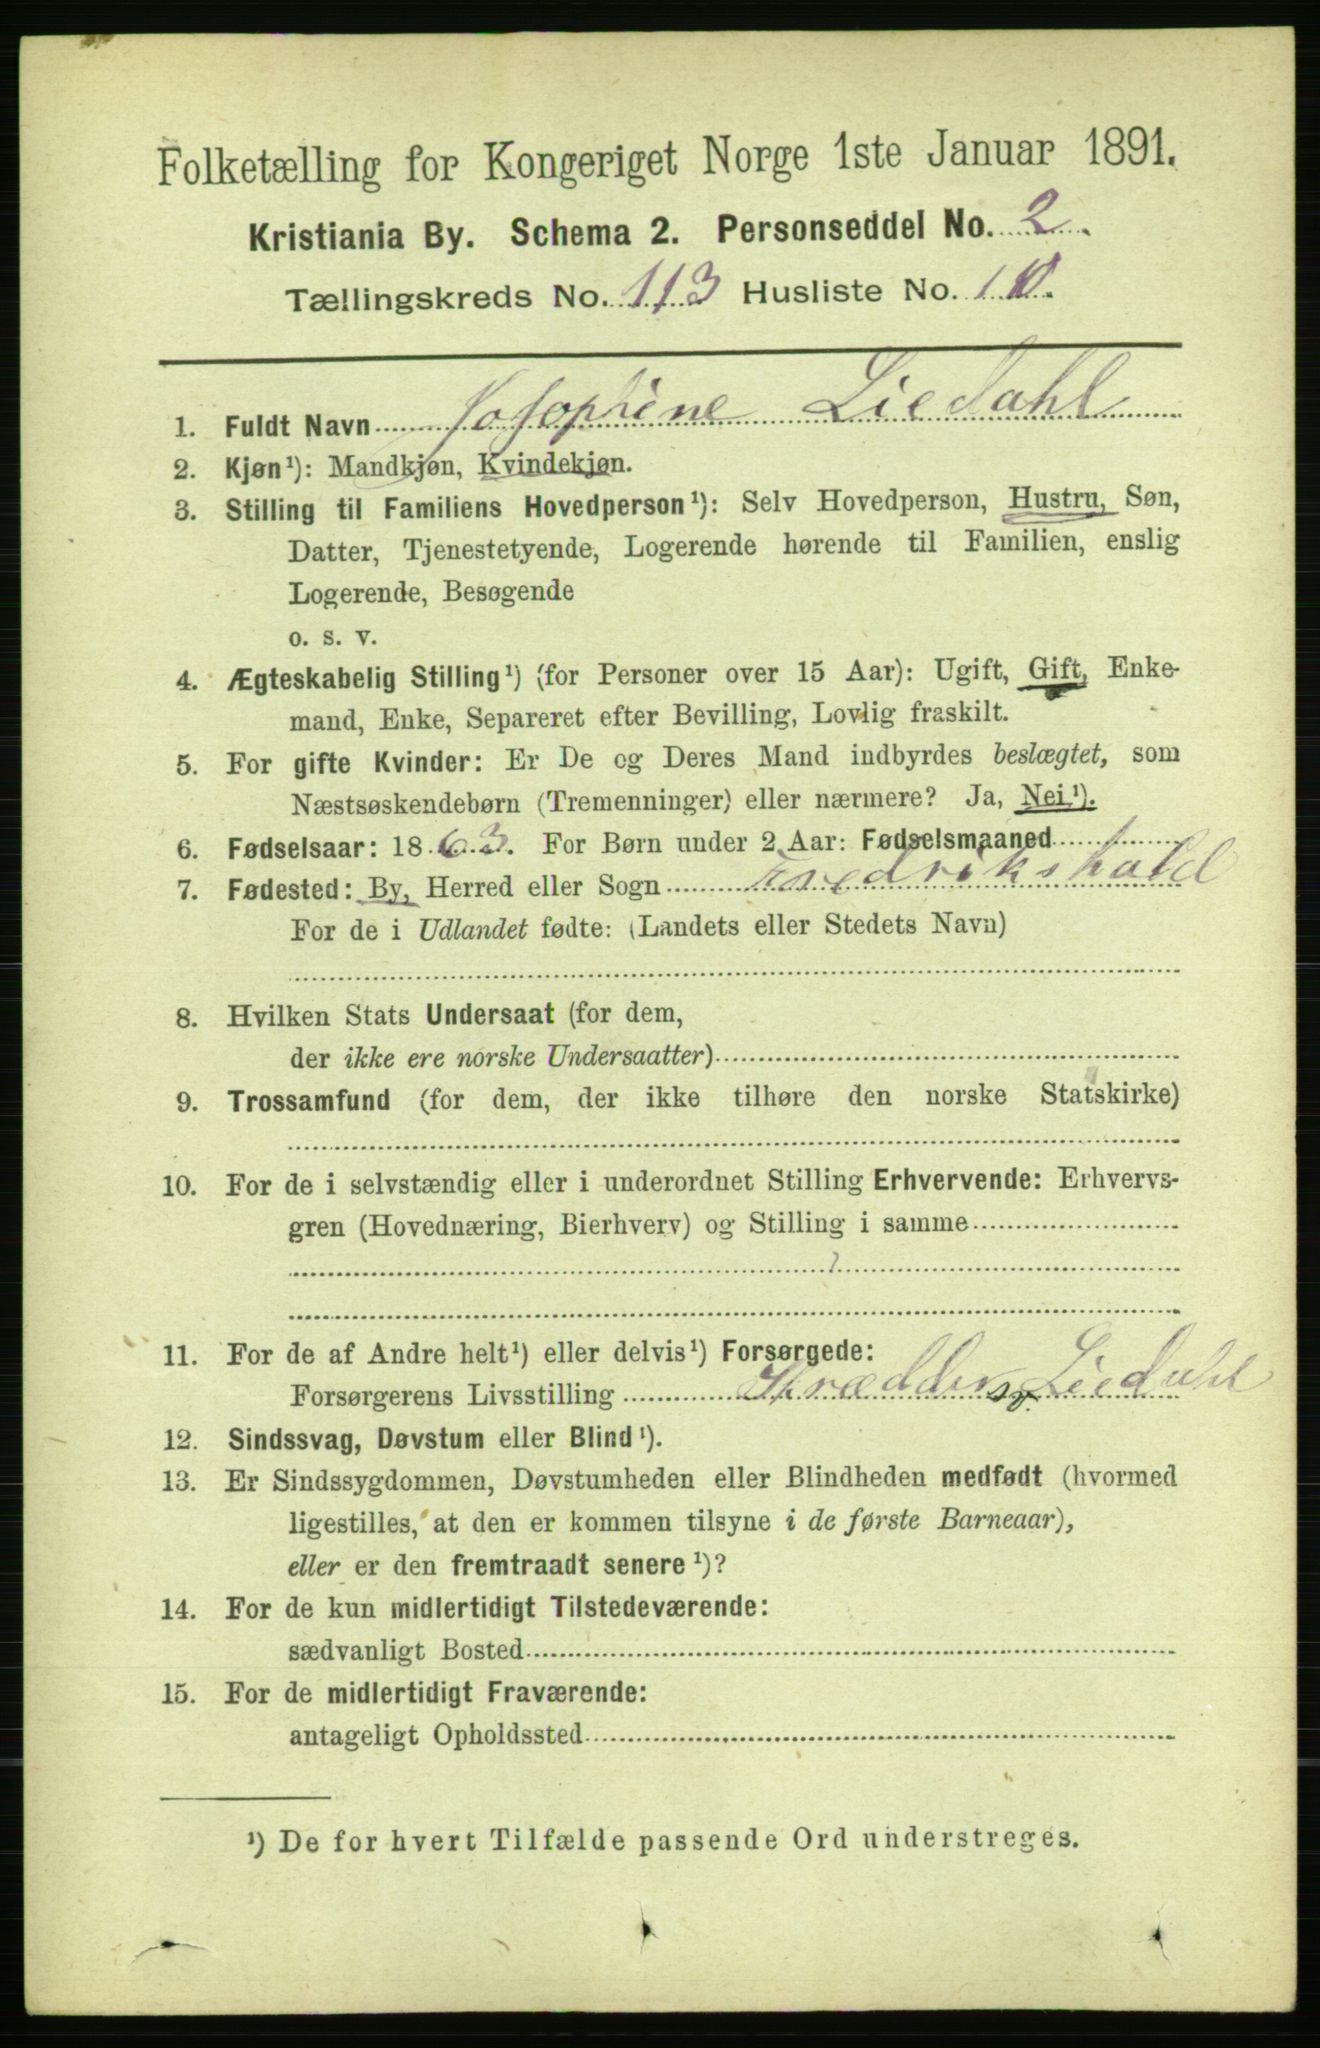 Folketælling for Kongeriget Norge 1ste Januar 1891.
Kristiania By. Schema 2. Personseddel No. 2.
Tællingskreds No. 113 Husliste No. 10.
1. Fuldt Navn Josephine Liedahl
2. Kjøn¹): Mandkjøn, Kvindekjøn.
3. Stilling til Familiens Hovedperson¹): Selv Hovedperson, Hustru, Søn,
Datter, Tjenestetyende, Logerende hørende til Familien, enslig
Logerende, Besøgende
o. s. v.
4. Ægteskabelig Stilling¹) (for Personer over 15 Aar): Ugift, Gift, Enke-
mand, Enke, Separeret efter Bevilling, Lovlig fraskilt.
5. For gifte Kvinder: Er De og Deres Mand indbyrdes beslægtet, som
Næstsøskendebørn (Tremenninger) eller nærmere? Ja, Nei¹).
6. Fødselsaar: 1863. For Børn under 2 Aar: Fødselsmaaned
7. Fødested: By, Herred eller Sogn Fredrikshald
For de i Udlandet fødte: (Landets eller Stedets Navn)
8. Hvilken Stats Undersaat (for dem,
der ikke ere norske Undersaatter)
9. Trossamfund (for dem, der ikke tilhøre den norske Statskirke)
10. For de i selvstændig eller i underordnet Stilling Erhvervende: Erhvervs-
gren (Hovednæring, Bierhverv) og Stilling i samme
11. For de af Andre helt¹) eller delvis¹) Forsørgede:
Forsørgerens Livsstilling Liedahl
12. Sindssvag, Døvstum eller Blind¹).
13. Er Sindssygdommen, Døvstumheden eller Blindheden medfødt (hvormed
ligestilles, at den er kommen tilsyne i de første Barneaar),
eller er den fremtraadt senere¹)?
14. For de kun midlertidigt Tilstedeværende:
sædvanligt Bosted
15. For de midlertidigt Fraværende:
antageligt Opholdssted
¹) De for hvert Tilfælde passende Ord understreges.